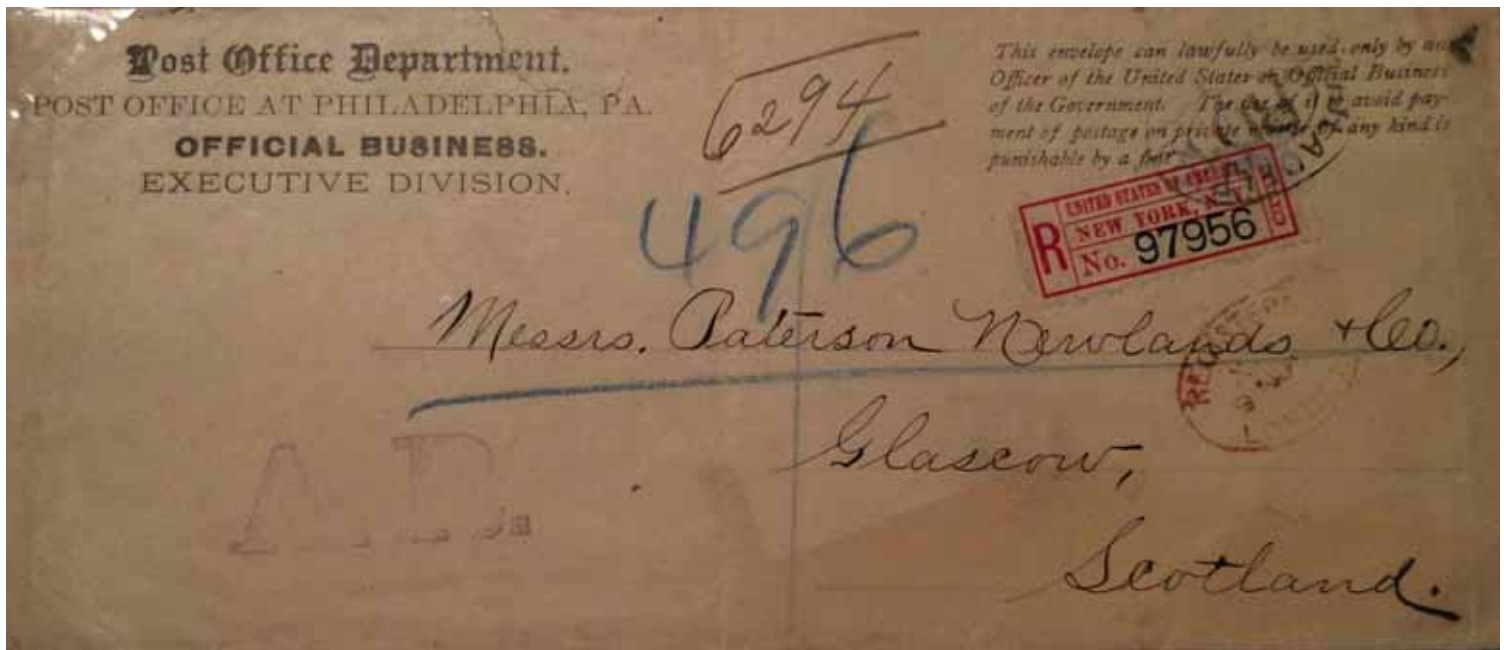 Post Office Department.
POST OFFICE AT PHILADELPHIA, PA.
OFFICIAL BUSINESS.
EXECUTIVE DIVISION.
6294
496
This envelope can lawfully be used only by an
Officer of the United States on Official Business
of the Government. The use of it to avoid pay-
ment of postage on private matter of any kind is
punishable by a fine
R
UNITED STATES OF AMERICA
NEW YORK, N.Y.
No. 97956
Messrs. Paterson Newlands + Co.,
Glascow,
Scotland.
REGISTERED
A.D.